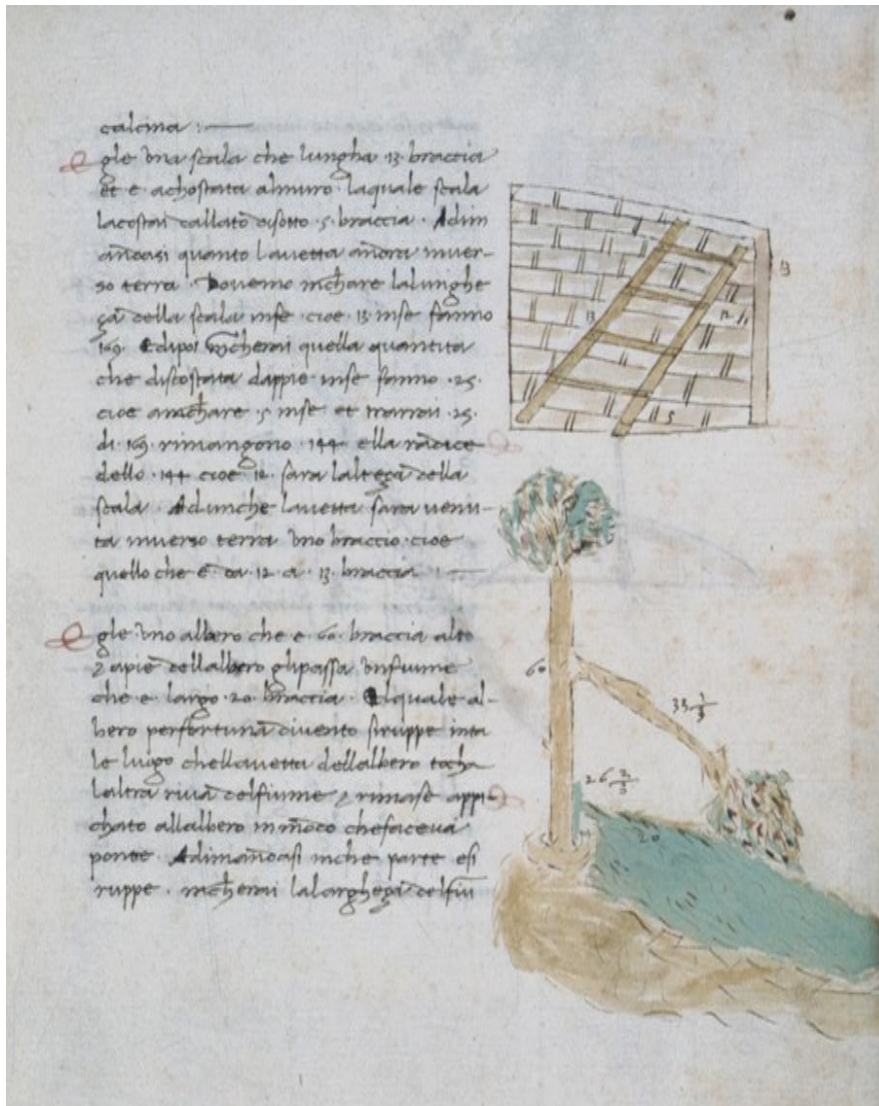 calcina :—
Egle una scala che lungha ·13· braccia
et e achostata almuro · laquale scala
lacostai dallato disotto ·5· braccia · Adim
andasi quanto lauetta andra inuer-
so terra · Dovemo mchare lalunghe
ça della scala inse · cioe · 13 inse fanno
169 · Edipoi mcherai quella quantita
che discostata dappie inse fanno ·25·
cioe amchare ·5 inse et trarrai ·25·
di ·169· rimangono ·144· ella radice
dello ·144· cioe ·12· sara lalteça della
scala · Adunche lauetta sara uenu-
ta inuerso terra uno braccio cioe
quello che é da ·12· a ·13· braccia :—
Egle uno albero che e ·60· braccia alto
⁊ apie dellalbero glipassa unfiume
che e largo ·20· braccia · Elquale al-
bero perfortuna divento siruppe inta
le luogo chellauetta dellalbero tocha
laltra riva delfiume ⁊ rimase appi-
chato allalbero inmodo chefaceva
ponte · Adimandasi inche parte esi
ruppe · mcherai lalargheça delfiu
13
13
12
5
60
33 1/3
26 2/3
20